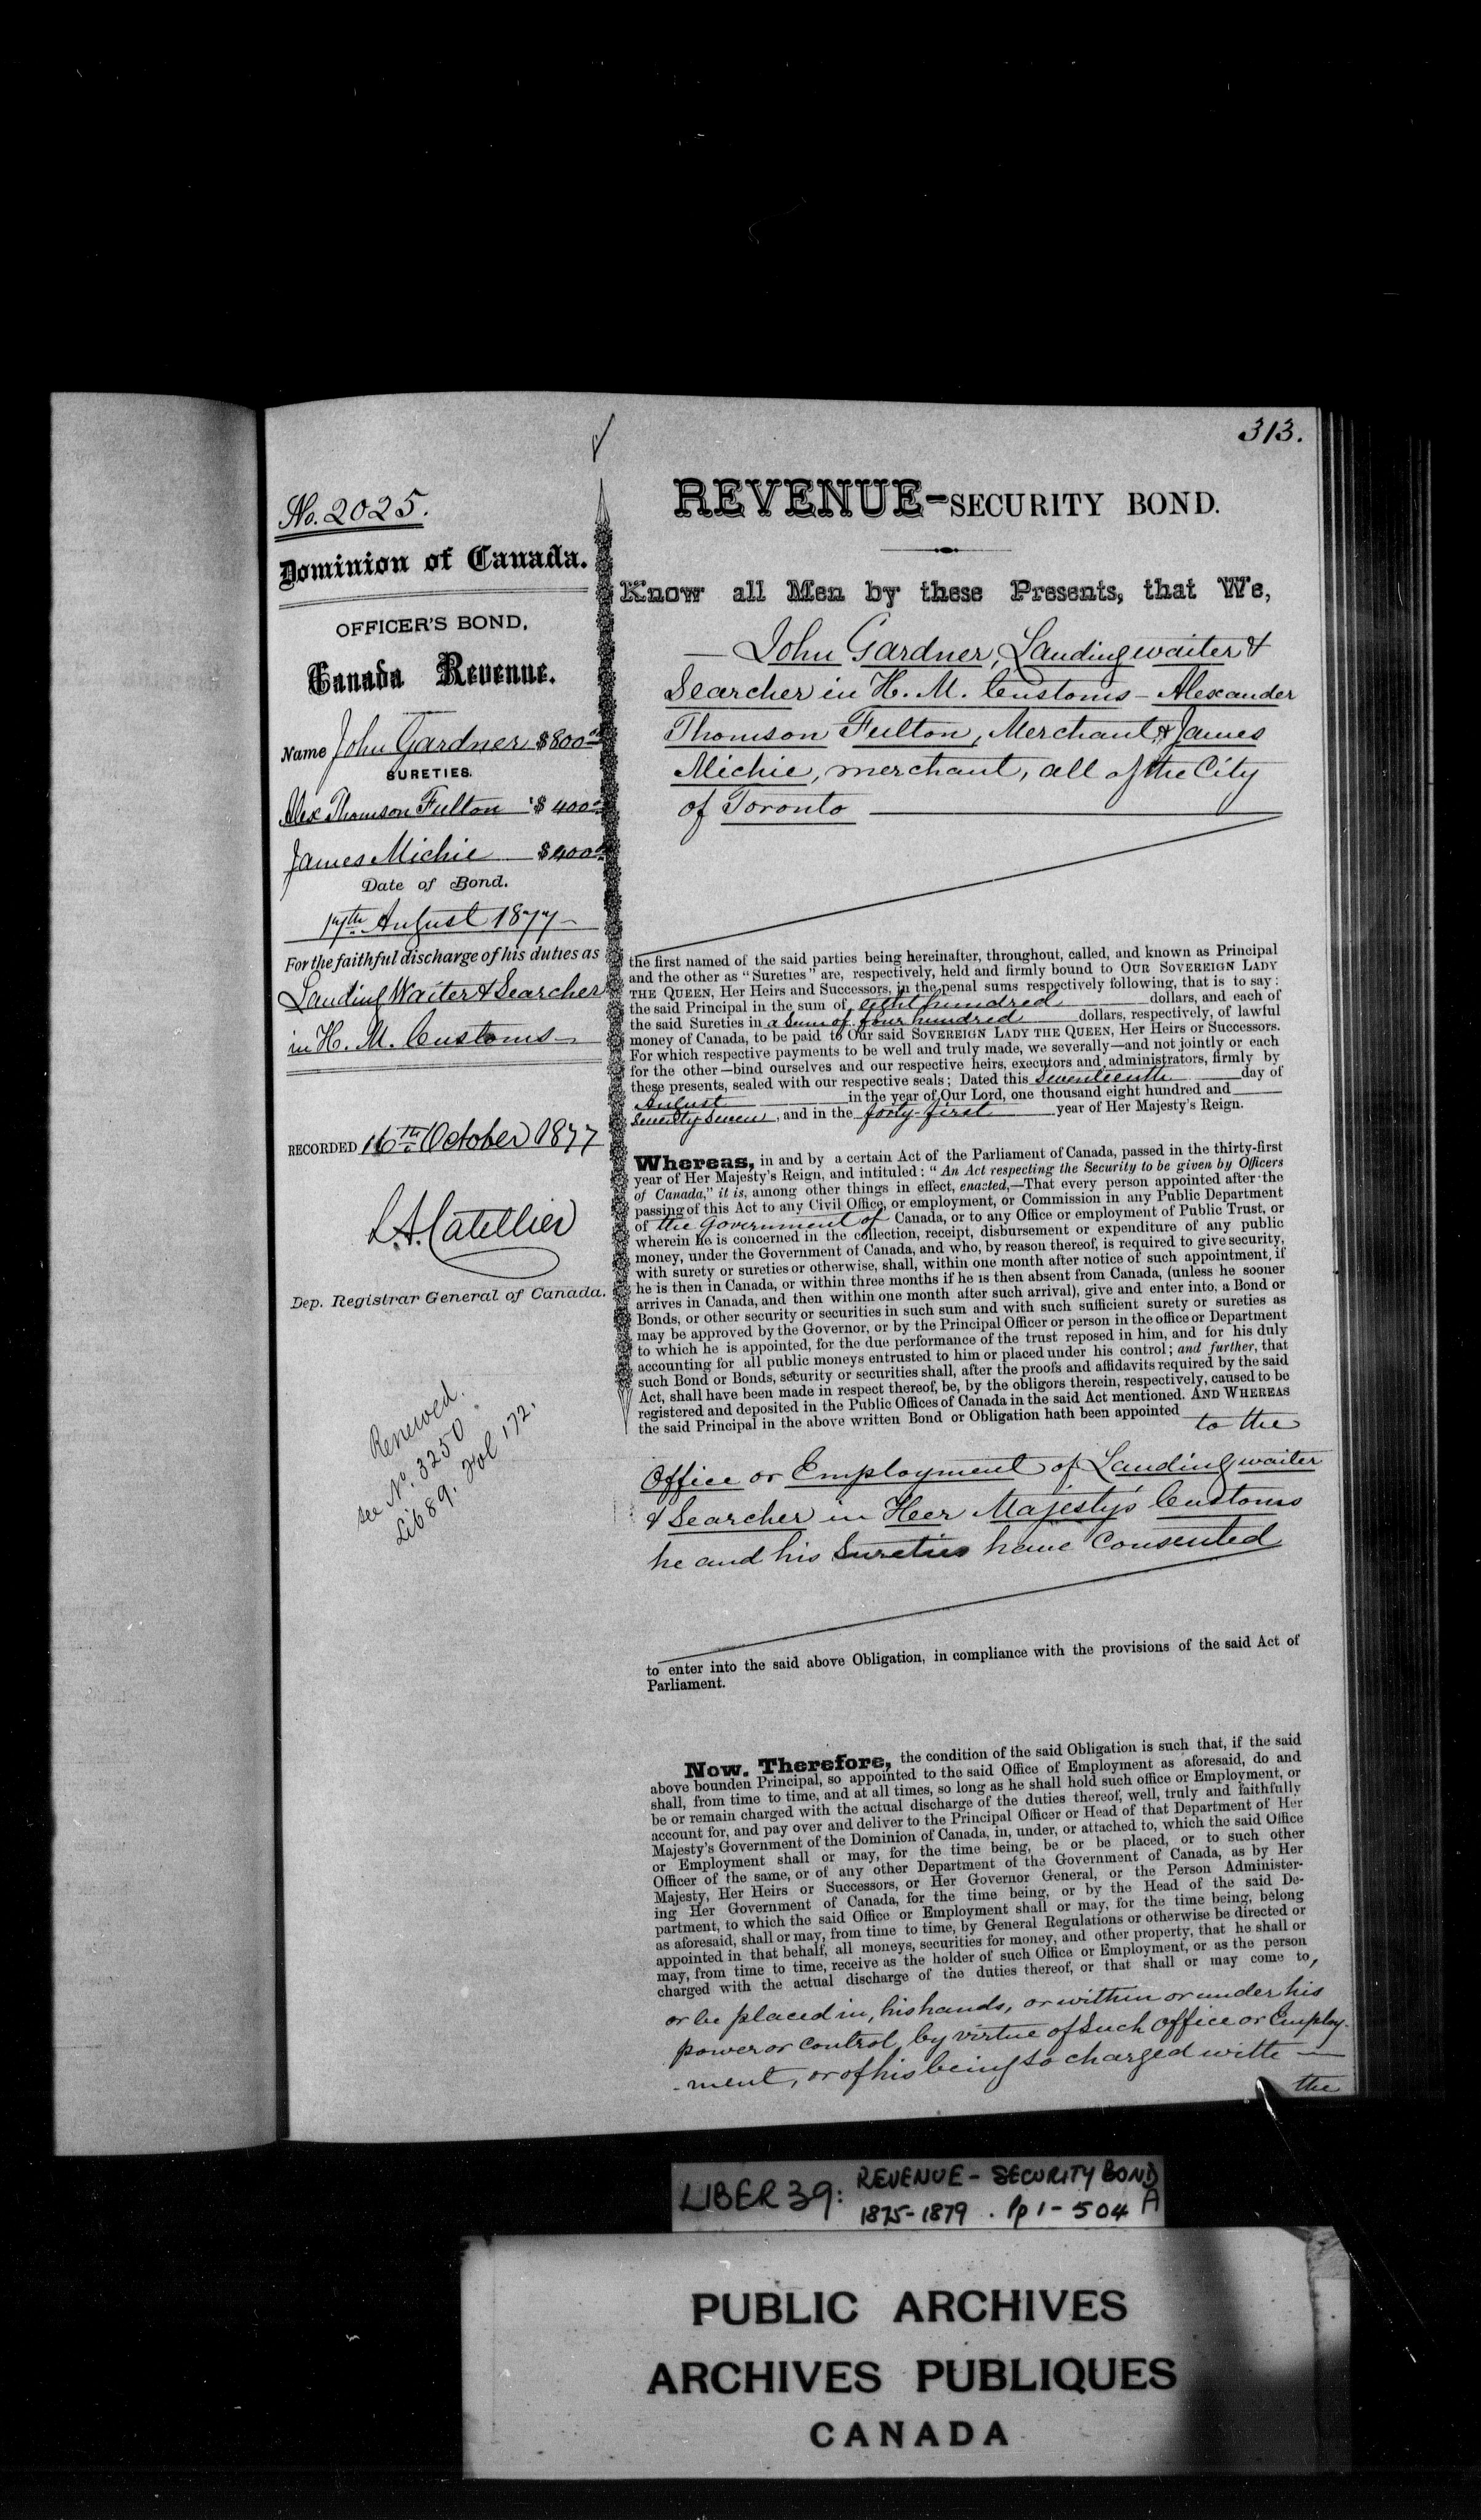 313.
No. 2025.
Dominion of Canada.
OFFICER'S BOND,
Canada Revenue.
Name John Gardner $800.00
SURETIES.
Alex Thomson Fulton $400.00
James Michie $400.00
Date of Bond.
17th August 1877
For the faithful discharge of his duties as
Landing Waiter & Searcher
in H. M. Customs
RECORDED 16th October 1877
L.A. Catellier
Dep. Registrar General of Canada.
Renewed.
see No. 3250.
Lib 89. Fol 172.
REVENUE-SECURITY BOND.
Know all Men by these Presents, that We,
— John Gardner, Landing waiter &
Searcher in H. M. Customs - Alexander
Thomson Fulton, Merchant, & James
Michie, merchant, all of the City
of Toronto
the first named of the said parties being hereinafter, throughout, called, and known as Principal
and the other as "Sureties" are, respectively, held and firmly bound to OUR SOVEREIGN LADY
THE QUEEN, Her Heirs and Successors, in the penal sums respectively following, that is to say:
the said Principal in the sum of eight hundred dollars, and each of
the said Sureties in a sum of four hundred dollars, respectively, of lawful
money of Canada, to be paid to Our said SOVEREIGN LADY THE QUEEN, Her Heirs or Successors.
For which respective payments to be well and truly made, we severally—and not jointly or each
for the other—bind ourselves and our respective heirs, executors and administrators, firmly by
these presents, sealed with our respective seals; Dated this Seventeenth day of
August in the year of Our Lord, one thousand eight hundred and
Seventy Seven, and in the forty-first year of Her Majesty's Reign.
Whereas, in and by a certain Act of the Parliament of Canada, passed in the thirty-first
year of Her Majesty's Reign, and intituled: "An Act respecting the Security to be given by Officers
of Canada," it is, among other things in effect, enacted,—That every person appointed after the
passing of this Act to any Civil Office, or employment, or Commission in any Public Department
of the Government of Canada, or to any Office or employment of Public Trust, or
wherein he is concerned in the collection, receipt, disbursement or expenditure of any public
money, under the Government of Canada, and who, by reason thereof, is required to give security,
with surety or sureties or otherwise, shall, within one month after notice of such appointment, if
he is then in Canada, or within three months if he is then absent from Canada, (unless he sooner
arrives in Canada, and then within one month after such arrival), give and enter into, a Bond or
Bonds, or other security or securities in such sum and with such sufficient surety or sureties as
may be approved by the Governor, or by the Principal Officer or person in the office or Department
to which he is appointed, for the due performance of the trust reposed in him, and for his duly
accounting for all public moneys entrusted to him or placed under his control; and further, that
such Bond or Bonds, security or securities shall, after the proofs and affidavits required by the said
Act, shall have been made in respect thereof, be, by the obligors therein, respectively, caused to be
registered and deposited in the Public Offices of Canada in the said Act mentioned. AND WHEREAS
the said Principal in the above written Bond or Obligation hath been appointed to the
Office or Employment of Landing waiter
& Searcher in Heer Majesty's Customs
he and his Sureties have Consented
to enter into the said above Obligation, in compliance with the provisions of the said Act of
Parliament.
Now, Therefore, the condition of the said Obligation is such that, if the said
above bounden Principal, so appointed to the said Office of Employment as aforesaid, do and
shall, from time to time, and at all times, so long as he shall hold such office or Employment, or
be or remain charged with the actual discharge of the duties thereof, well, truly and faithfully
account for, and pay over and deliver to the Principal Officer or Head of that Department of Her
Majesty's Government of the Dominion of Canada, in, under, or attached to, which the said Office
or Employment shall or may, for the time being, be or be placed, or to such other
Officer of the same, or of any other Department of the Government of Canada, as by Her
Majesty, Her Heirs or Successors, or Her Governor General, or the Person Administer-
ing Her Government of Canada, for the time being, or by the Head of the said De-
partment, to which the said Office or Employment shall or may, for the time being, belong
as aforesaid, shall or may, from time to time, by General Regulations or otherwise be directed or
appointed in that behalf, all moneys, securities for money, and other property, that he shall or
may, from time to time, receive as the holder of such Office or Employment, or as the person
charged with the actual discharge of the duties thereof, or that shall or may come to,
or be placed in, his hands, or within or under his
power or control, by virtue of such Office or Employ-
-ment, or of his being so charged with —
the
LIBER 39: REVENUE - SECURITY BOND
1875-1879 . Pp 1-504 A
PUBLIC ARCHIVES
ARCHIVES PUBLIQUES
CANADA